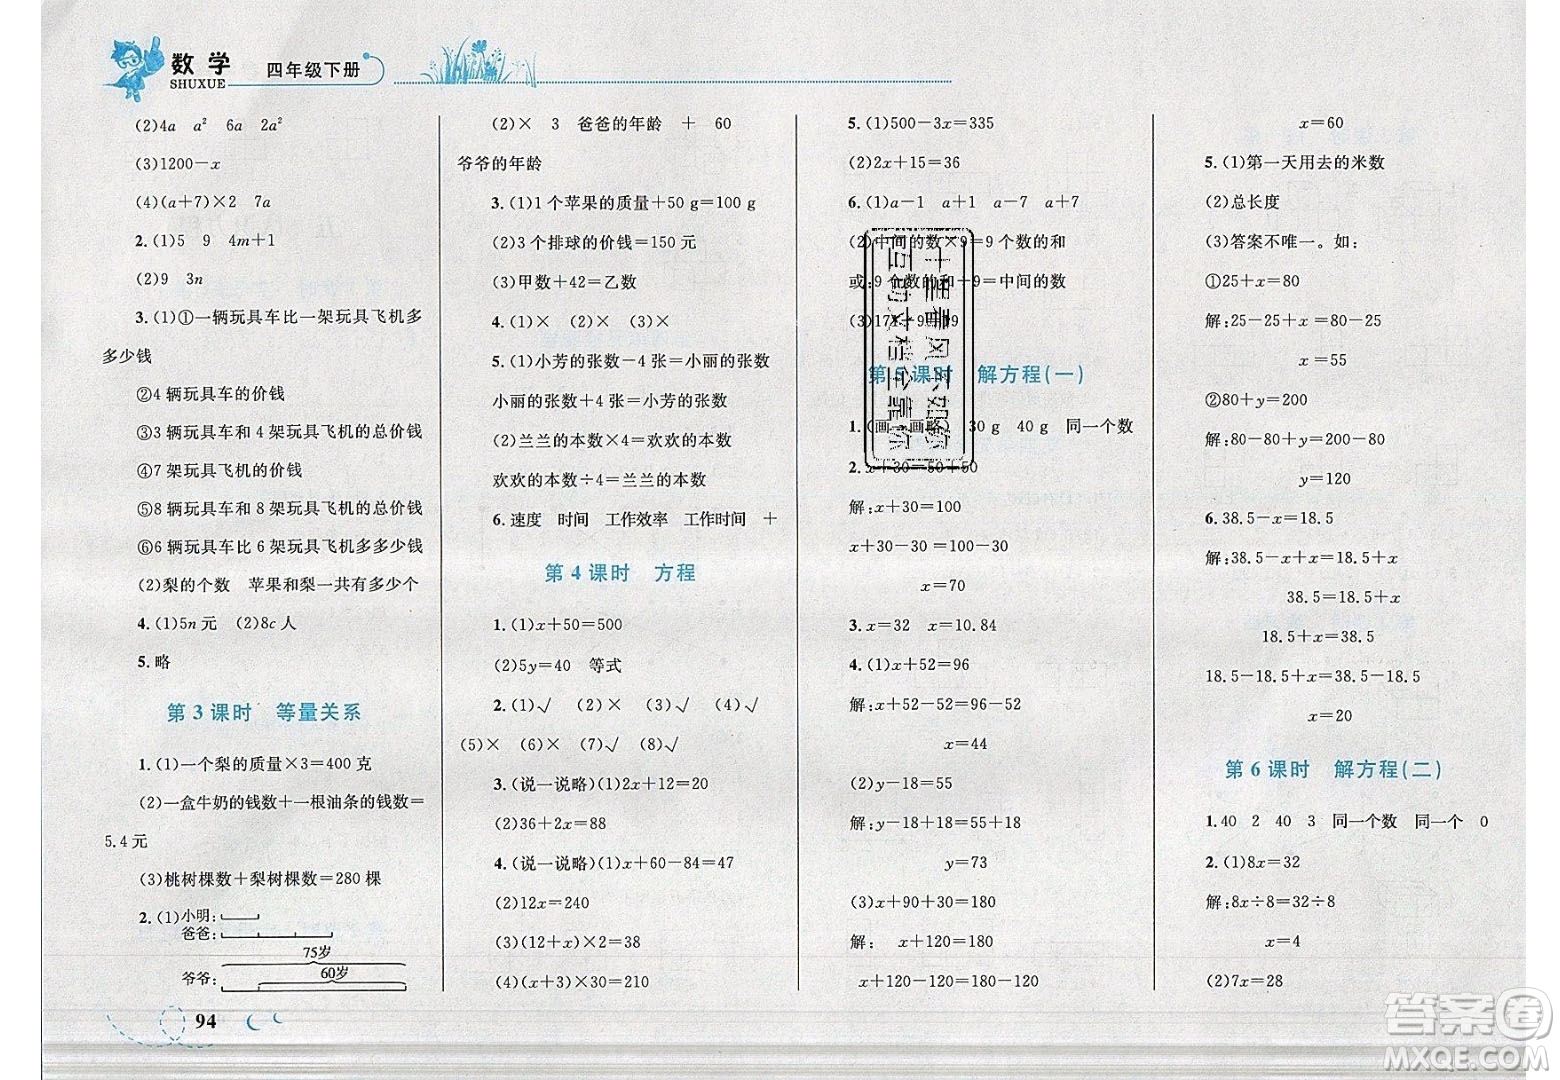 数学
SHUXUE
四年级下册
(2)4a a² 6a 2a²
(3)1200－x
(4)(a＋7)×2 7a
2.(1)5 9 4m＋1
(2)9 3n
3.(1)①一辆玩具车比一架玩具飞机多
多少钱
②4 辆玩具车的价钱
③3 辆玩具车和 4 架玩具飞机的总价钱
④7 架玩具飞机的价钱
⑤8 辆玩具车和 8 架玩具飞机的总价钱
⑥6 辆玩具车比 6 架玩具飞机多多少钱
(2)梨的个数 苹果和梨一共有多少个
4.(1)5n 元 (2)8c 人
5.略
第 3 课时 等量关系
1.(1)一个梨的质量×3＝400 克
(2)一盒牛奶的钱数＋一根油条的钱数＝
5.4 元
(3)桃树棵数＋梨树棵数＝280 棵
2.(1)小明:
爸爸:
75岁
爷爷:
60岁
94
(2)× 3 爸爸的年龄 ＋ 60
爷爷的年龄
3.(1)1 个苹果的质量＋50 g＝100 g
(2)3 个排球的价钱＝150 元
(3)甲数＋42＝乙数
4.(1)× (2)× (3)×
5.(1)小芳的张数－4 张＝小丽的张数
小丽的张数＋4 张＝小芳的张数
(2)兰兰的本数×4＝欢欢的本数
欢欢的本数÷4＝兰兰的本数
6.速度 时间 工作效率 工作时间 ＋
第 4 课时 方程
1.(1)x＋50＝500
(2)5y＝40 等式
2.(1)√ (2)× (3)√ (4)√
(5)× (6)× (7)√ (8)√
3.(说一说略)(1)2x＋12＝20
(2)36＋2x＝88
4.(说一说略)(1)x＋60－84＝47
(2)12x＝240
(3)(12＋x)×2＝38
(4)(x＋30)×5＝210
5.(1)500－3x＝335
(2)2x＋15＝36
6.(1)a－1 a＋1 a－7 a＋7
(2)中间的数×9＝9 个数的和
或:9 个数的和÷9＝中间的数
(3)171÷9＝19
第 5 课时 解方程(一)
1.(画一画略) 30 g 40 g 同一个数
2.x＋30＝50＋50
解:x＋30＝100
x＋30－30 ＝100－30
x＝70
3.x＝32 x＝10.84
4.(1)x＋52＝96
解:x＋52－52＝96－52
x＝44
(2)y－18＝55
解:y－18＋18＝55＋18
y＝73
(3)x＋90＋30＝180
解: x＋120＝180
x＋120－120＝180－120
x＝60
5.(1)第一天用去的米数
(2)总长度
(3)答案不唯一。如:
①25＋x＝80
解:25－25＋x＝80－25
x＝55
②80＋y＝200
解:80－80＋y＝200－80
y＝120
6.38.5－x＝18.5
解:38.5－x＋x＝18.5＋x
38.5＝18.5＋x
18.5＋x＝38.5
18.5－18.5＋x＝38.5－18.5
x＝20
第 6 课时 解方程(二)
1.40 2 40 3 同一个数 同一个 0
2.(1)8x＝32
解:8x÷8＝32÷8
x＝4
(2)7x＝28
答案圈
MXQE.COM